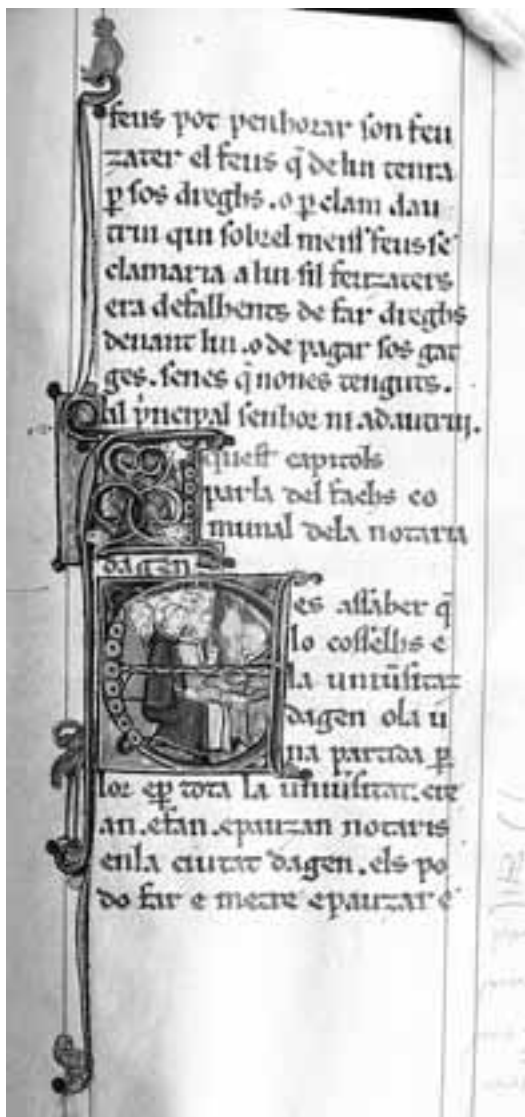 feus pot penhorar son feu
zater el feus q̄ de lui tenra
ꝑ sos dreghs. o ꝑ clam dau
trui qui sobrel meill feus se
clamaria a lui sil feuzaters
era defalhents de far dreghs
denant lui. o de pagar sos gat
ges. senes q̄ nones tenguts.
al pͥncipal senhor ni adautrui.
Aquest capitols
parla del fachs co
munal dela notaria
dagen
Es assaber q̄
lo cosselhs e
la uniũsitaz
dagen o la u
na partida ꝑ
lor e ꝑ tota la uniũsitat. cre
an. e fan. e pauzan notaris
en la ciutat dagen. els po
do far e metre e pauzar e